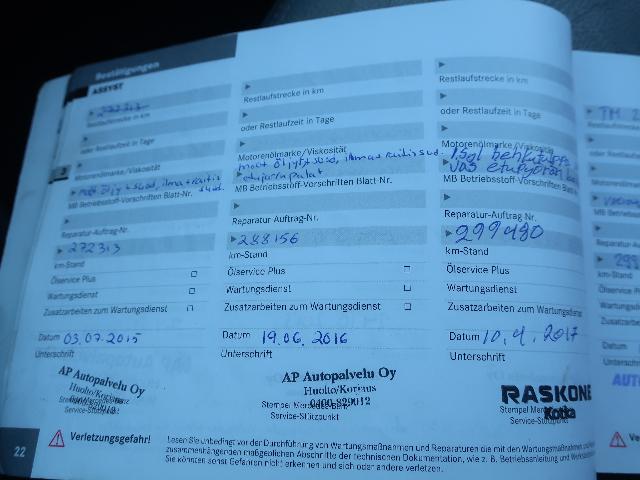 Bestätigungen
ASSYST
272313
Restlaufstrecke in km
oder Restlaufzeit in Tage
Motorenölmarke/Viskosität
mot öljyt+suod, ilma+raitis suod.
MB Betriebsstoff-Vorschriften Blatt-Nr.
Reparatur Auftrag-Nr.
272313
km-Stand
Ölservice Plus
Wartungsdienst
Zusatzarbeiten zum Wartungsdienst
Datum 03.07.2015
Unterschrift
AP Autopalvelu Oy
Huolto/Korjaus
Service-Stützpunkt
Restlaufstrecke in km
oder Restlaufzeit in Tage
Motorenölmarke/Viskosität
mot öljyt+suod, ilma+raitis suod.
etujarrupalat
MB Betriebsstoff-Vorschriften Blatt-Nr.
Reparatur Auftrag-Nr.
288156
km-Stand
Ölservice Plus
Wartungsdienst
Zusatzarbeiten zum Wartungsdienst
Datum 19.06.2016
Unterschrift
AP Autopalvelu Oy
Huolto/Korjaus
0400-829012
Stempel Mercedes-Benz
Service-Stützpunkt
Restlaufstrecke in km
oder Restlaufzeit in Tage
Motorenölmarke/Viskosität
MB Betriebsstoff-Vorschriften Blatt-Nr.
Reparatur-Auftrag-Nr.
299480
km-Stand
Ölservice Plus
Wartungsdienst
Zusatzarbeiten zum Wartungsdienst
Datum 10.4.2017
Unterschrift
RASKONE
Kotka
Stempel
Service-Stützpunkt
22
Verletzungsgefahr!
Lesen Sie unbedingt vor der Durchführung von Wartungsmaßnahmen und Reparaturen die mit den Wartungsmaßnahmen und
zusammenhängenden maßgeblichen Abschnitte der technischen Dokumentation, wie z. B. Betriebsanleitung und
Sie könnten sonst Gefahren nicht erkennen und sich oder andere verletzen.